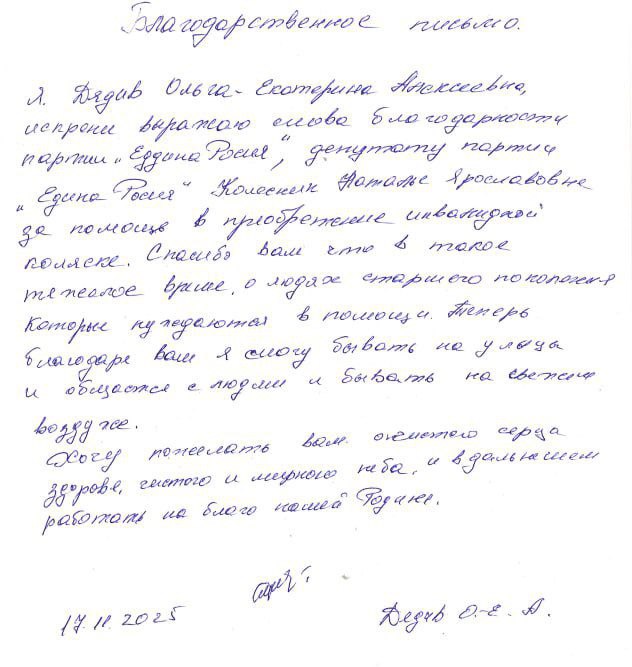 Благодарственное письмо.
Я. Дядив Ольга-Екатерина Алексеевна,
искрени выражаю слова благодарности
партии „Еддина Росия", депутату партии
„Едина Росия" Колесник Наталье Ярославовне
за помощь в преобретение инвалидной
коляске. Спасибо вам что в такое
тяжелое время, о людях старшего поколения
которые нуждаются в помощи. Теперь
благодаря вам я смогу бывать на улицы
и общатся с людми и бывать на свежем
воздухе.
Хочу пожелать вам очистого серца
здорове, чистого и мирного неба, и в дальнешем
работать на благо нашей Родине.
17.11.2025 Дядив О.-Е. А.